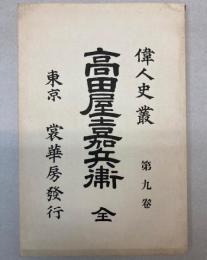 偉人史叢
第九卷
高田屋嘉兵衞 全
東京 裳華房發行